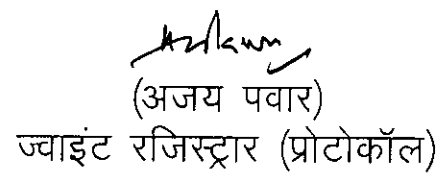 (अजय पवार)
ज्वाइंट रजिस्ट्रार (प्रोटोकॉल)